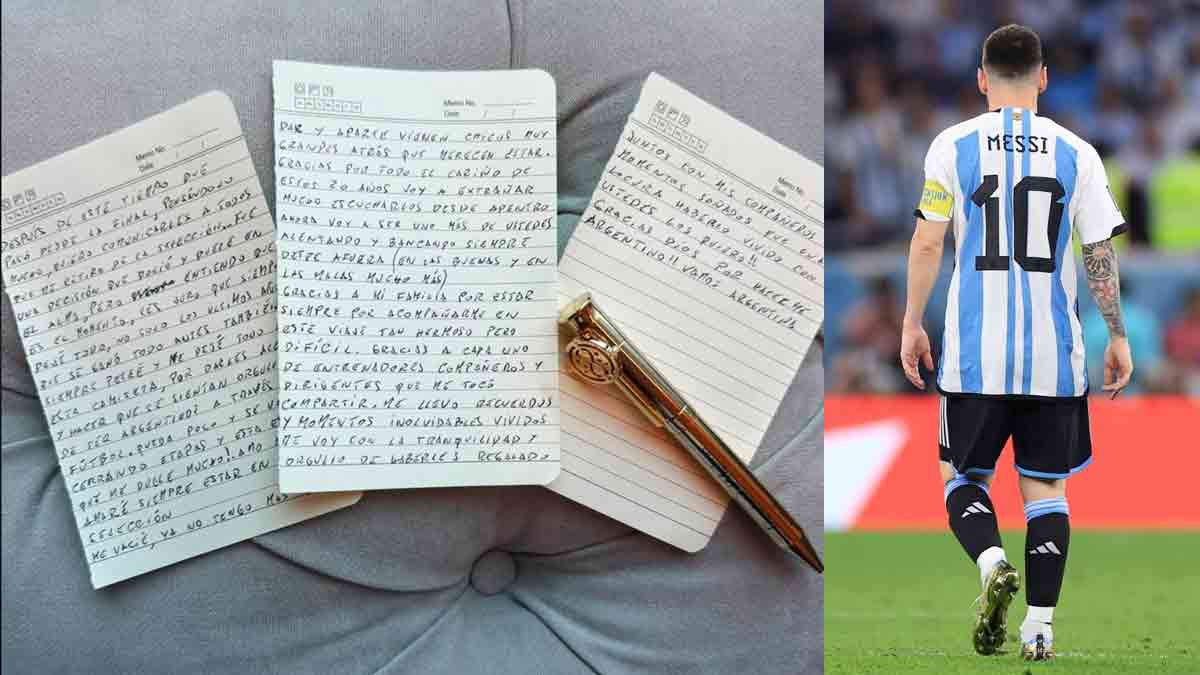 Memo No.
Date / /
DESPUÉS DE ESTE TIEMPO QUE
PASÓ DESDE LA FINAL, PENSÁNDOLO
MUCHO, QUIERO COMUNICARLES A TODOS
QUE ME RETIRO DE LA SELECCIÓN. FUE
UNA DECISIÓN QUE DOLIÓ Y DUELE EN
EL ALMA PERO ENTIENDO QUE
ES EL MOMENTO, LES JURO QUE SIEMP
DEJÉ TODO, NO SOLO LOS ULTIMOS AÑ
QUE SE GANÓ TODO ANTES TAMBIÉN
SIEMPRE PELEÉ Y ME DEJÉ TODO
ESTA CAMISETA, POR DARLES ALE
Y HACER QUE SE SIENTAN ORGUL
DE SER ARGENTINOS A TRAVÉS
FÚTBOL. QUEDA POCO Y SE VA
CERRANDO ETAPAS Y ESTA E
QUE ME DUELE MUCHO! AMO
AMARÉ SIEMPRE ESTAR EN
SELECCIÓN
ME VACIÉ, YA NO TENGO MÁS
Memo No.
Date / /
DAR Y APARTE VIENEN CHICOS MUY
GRANDES ATRÁS QUE MERECEN ESTAR.
GRACIAS POR TODO EL CARIÑO DE
ESTOS 20 AÑOS VOY A EXTRAÑAR
MUCHO ESCUCHARLOS DESDE ADENTRO
AHORA VOY A SER UNO MÁS DE USTEDES
ALENTANDO Y BANCANDO SIEMPRE
DESDE AFUERA (EN LAS BUENAS Y EN
LAS MALAS MUCHO MÁS)
GRACIAS A MI FAMILIA POR ESTAR
SIEMPRE POR ACOMPAÑARME EN
ESTE VIAJE TAN HERMOSO PERO
DIFÍCIL. GRACIAS A CADA UNO
DE ENTRENADORES COMPAÑEROS Y
DIRIGENTES QUE ME TOCÓ
COMPARTIR. ME LLEVO RECUERDOS
Y MOMENTOS INOLVIDABLES VIVIDOS
ME VOY CON LA TRANQUILIDAD Y
ORGULLO DE HABERLES REGALADO
Memo No.
Date / /
JUNTOS CON MIS COMPAÑEROS
MOMENTOS SOÑADOS FUE UNA
LOCURA HABERLO VIVIDO CON
USTEDES LOS QUIERO!!
GRACIAS DIOS POR HACERME
ARGENTINO!! VAMOS ARGENTINA
MESSI
10